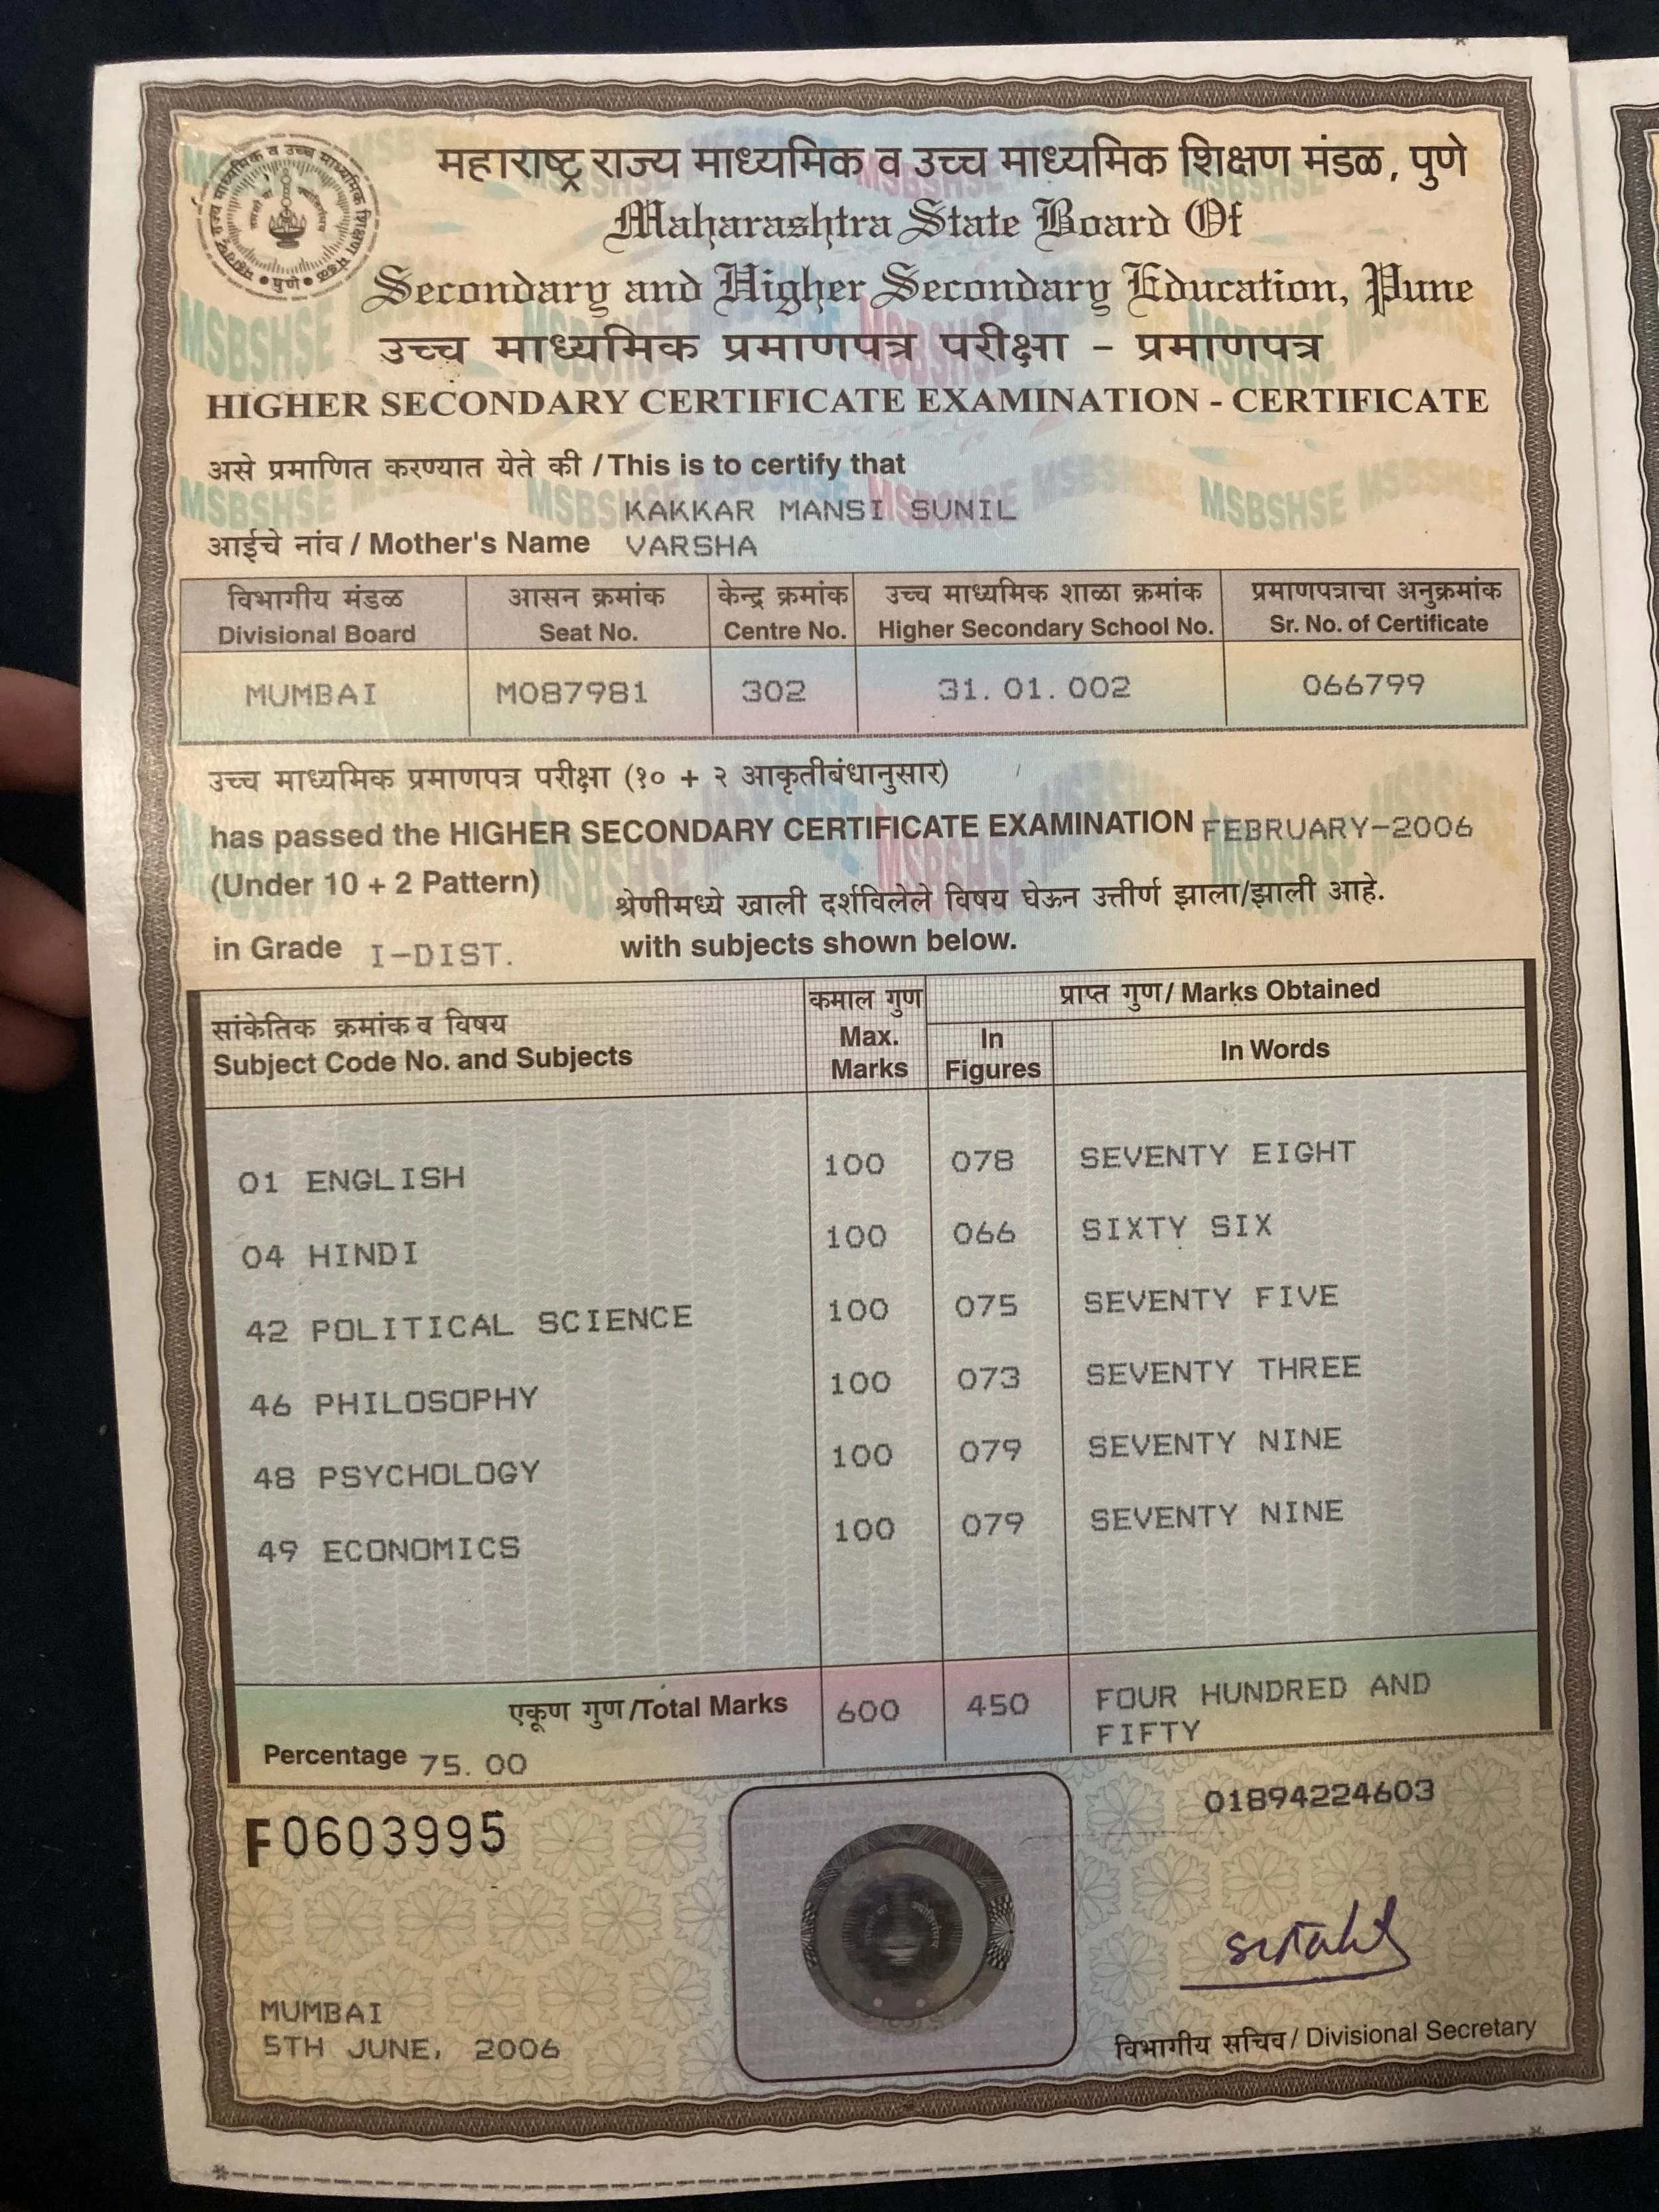 महाराष्ट्र राज्य माध्यमिक व उच्च माध्यमिक शिक्षण मंडळ, पुणे
Maharashtra State Board Of
Secondary and Higher Secondary Education, Pune
उच्च माध्यमिक प्रमाणपत्र परीक्षा - प्रमाणपत्र
HIGHER SECONDARY CERTIFICATE EXAMINATION - CERTIFICATE
असे प्रमाणित करण्यात येते की / This is to certify that
KAKKAR MANSI SUNIL
आईचे नांव / Mother's Name VARSHA
विभागीय मंडळ आसन क्रमांक केन्द्र क्रमांक उच्च माध्यमिक शाळा क्रमांक प्रमाणपत्राचा अनुक्रमांक
Divisional Board Seat No. Centre No. Higher Secondary School No. Sr. No. of Certificate
MUMBAI M087981 302 31.01.002 066799
उच्च माध्यमिक प्रमाणपत्र परीक्षा (१० + २ आकृतीबंधानुसार)
has passed the HIGHER SECONDARY CERTIFICATE EXAMINATION FEBRUARY-2006
(Under 10 + 2 Pattern)
श्रेणीमध्ये खाली दर्शविलेले विषय घेऊन उत्तीर्ण झाला/झाली आहे.
in Grade I-DIST. with subjects shown below.
सांकेतिक क्रमांक व विषय कमाल गुण प्राप्त गुण / Marks Obtained
Subject Code No. and Subjects Max. Marks In Figures In Words
01 ENGLISH 100 078 SEVENTY EIGHT
04 HINDI 100 066 SIXTY SIX
42 POLITICAL SCIENCE 100 075 SEVENTY FIVE
46 PHILOSOPHY 100 073 SEVENTY THREE
48 PSYCHOLOGY 100 079 SEVENTY NINE
49 ECONOMICS 100 079 SEVENTY NINE
एकूण गुण/Total Marks 600 450 FOUR HUNDRED AND
FIFTY
Percentage 75.00
01894224603
F0603995
MUMBAI
5TH JUNE, 2006
विभागीय सचिव / Divisional Secretary